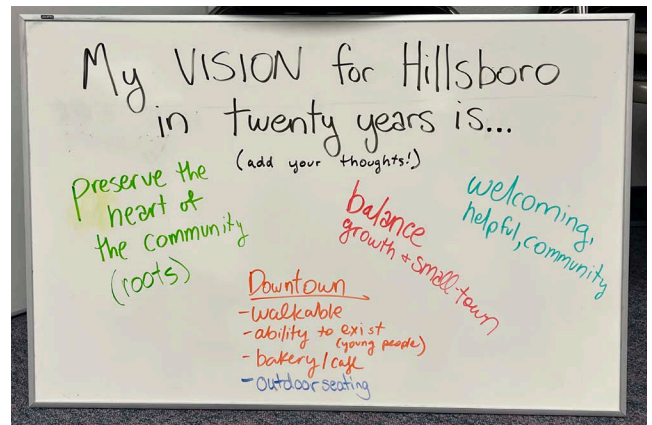 My VISION for Hillsboro
in twenty years is...
(add your thoughts!)
Preserve the
heart of
the community
(roots)
balance
growth + small-town
welcoming,
helpful, community
Downtown
-walkable
-ability to exist
(young people)
-bakery/cafe
-outdoor seating